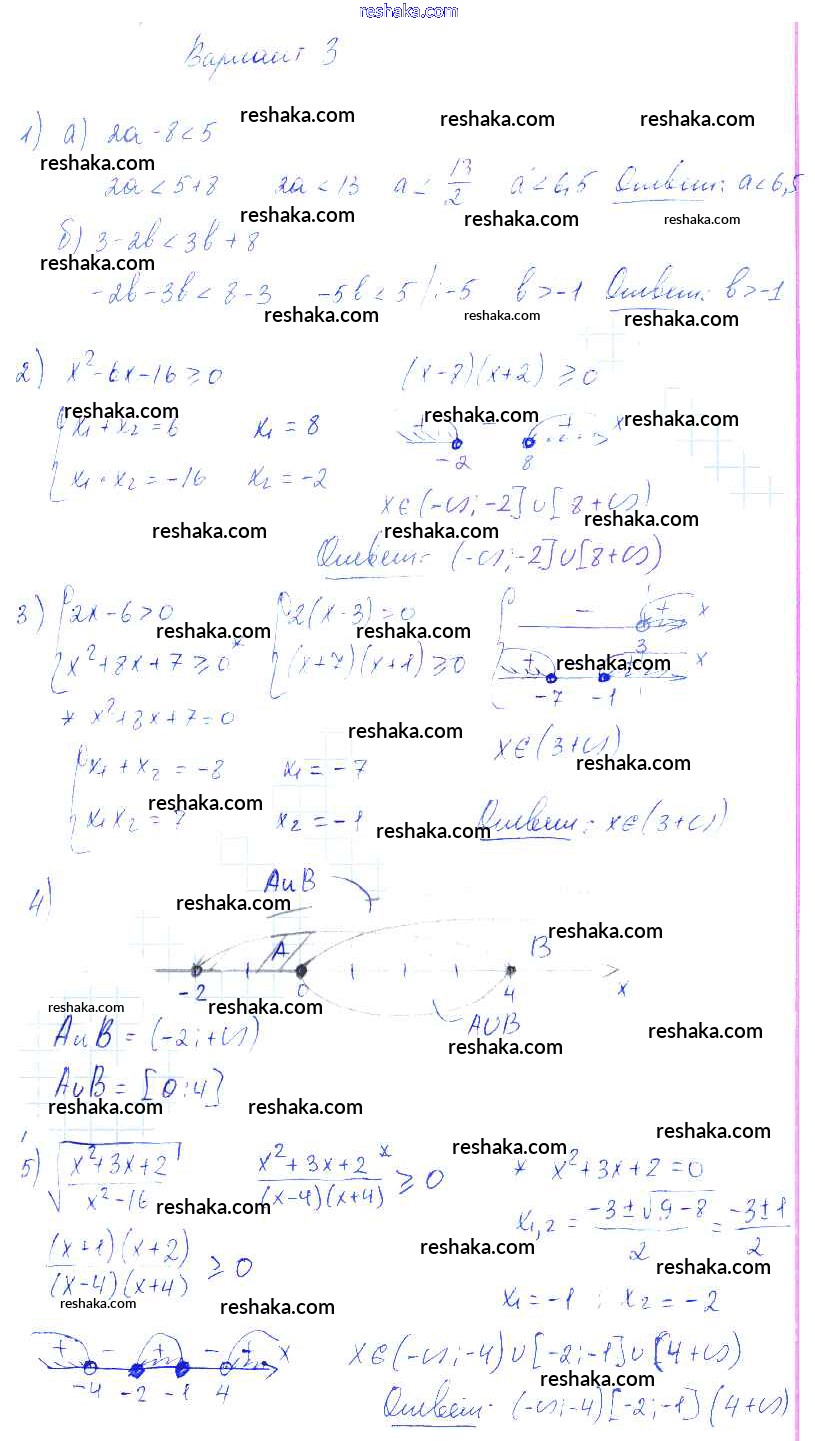 reshaka.com
Вариант 3
1) а) 2a - 8 < 5
2a < 5+8 2a < 13 a < 13/2 a < 6,5 Ответ: a < 6,5
б) 3 - 2b < 3b + 8
-2b - 3b < 8 - 3 -5b < 5 /: -5 b > -1 Ответ: b > -1
2) x² - 6x - 16 ≥ 0 (x-8)(x+2) ≥ 0
x₁ + x₂ = 6 x₁ = 8 + - + x
x₁ · x₂ = -16 x₂ = -2 -2 8
x ∈ (-∞; -2] ∪ [8 +∞)
Ответ: (-∞; -2] ∪ [8 +∞)
3) { 2x - 6 > 0 { 2(x-3) = 0 - + x
x² + 8x + 7 ≥ 0* (x+7)(x+1) ≥ 0 3
+ x
-7 -1
* x² + 8x + 7 = 0
x ∈ (3 +∞)
{ x₁ + x₂ = -8 x₁ = -7
x₁ x₂ = 7 x₂ = -1 Ответ: x ∈ (3 +∞)
4) A∪B
A B
-2 0 4 x
A∪B
A∪B = (-2; +∞)
A∪B = [0; 4]
5) √(x²+3x+2 / x²-16) x²+3x+2* / (x-4)(x+4) ≥ 0 * x² + 3x + 2 = 0
x₁,₂ = (-3 ± √9-8) / 2 = (-3 ± 1) / 2
(x+1)(x+2) / (x-4)(x+4) ≥ 0
x₁ = -1 ; x₂ = -2
+ - + - + x x ∈ (-∞; -4) ∪ [-2; -1] ∪ (4 +∞)
-4 -2 -1 4
Ответ: (-∞; -4) [-2; -1] (4 +∞)